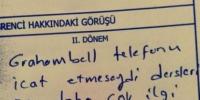 RENCİ HAKKINDAKİ GÖRÜŞÜ
II. DÖNEM
Grahambell telefonu
icat etmeseydi dersleri
daha çok ilgi